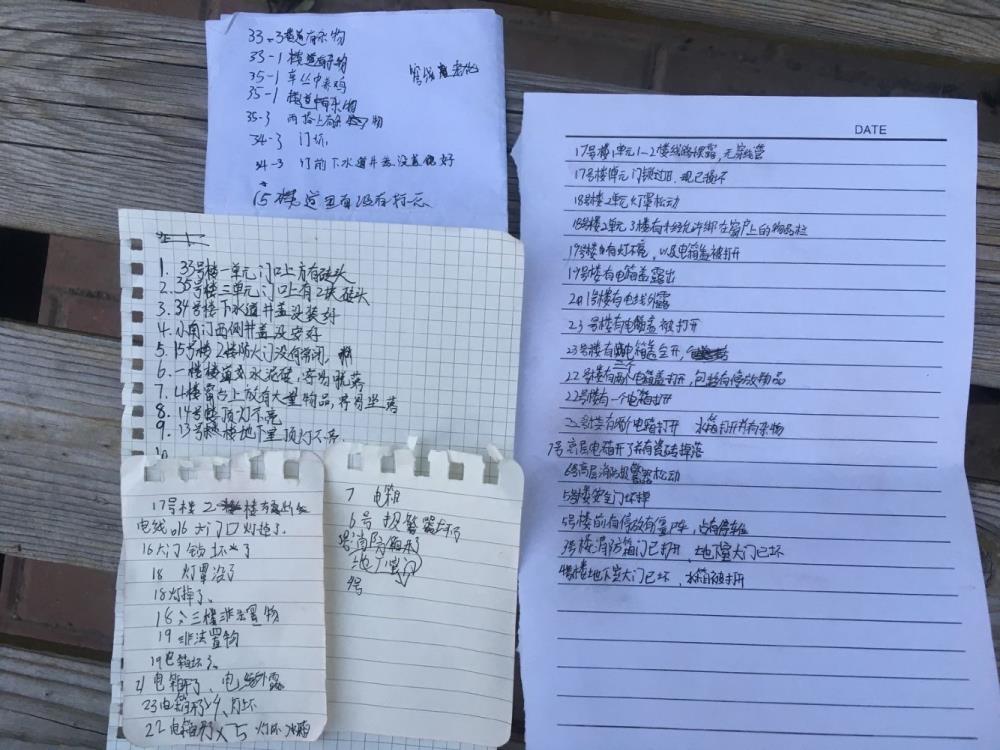 33-3楼道有杂物
33-1 楼道有杂物
35-1 车丛中养鸡
35-1 楼道有杂物
35-3
34-3 门坏
34-3 门前下水道井盖没盖好
15楼道里有没有打
管线 老化
1. 33号楼一单元门口上方有砖头
2. 35号楼三单元门口上有2块砖头
3. 34号楼下水道井盖没装好
4. 小南门西侧井盖没安好
5. 15号楼2楼防火门没有常闭
6. 一楼楼道 水泥破，容易脱落
7. 4楼窗台上放有大量物品，容易坠落
8. 14号楼顶灯不亮
9. 13号楼楼地下室顶灯不亮.
10
17号楼 2 楼有
电线 16 大门口灯掉了.
16大门锁坏了
18 灯罩没了
18灯掉了.
18、三楼非法置物
19 非法置物
19电箱坏了.
21电箱开了、电线外露
23电箱开 4、灯坏
22电箱开×5 灯坏
7 电箱
6号 报警器
消防箱开了
地下室门
9号
DATE
17号楼1单元1-2楼线路裸露，无穿线管
17号楼 单元门锁 ，现已损坏
18号楼2单元灯罩松动
18号楼2单元3楼有未经允许绑在窗户上的物品栏
19号楼 有灯不亮，以及电箱盖被打开
19号楼有电箱盖露出
21号楼有电线外露
23号楼有电箱盖被打开
23号楼有 电箱盖全开，
22号楼有两个电箱盖打开，包括有停放物品
22号楼有一个电箱打开
号楼有两个电箱打开 水箱打开并有杂物
7号高层电箱开了并有瓷砖掉落
6号高层消防报警器松动
5号楼安全门坏掉
5号楼前有停放有僵尸车，占有停车位
9号楼消防箱门已打开，地下室大门已坏
号楼地下室大门已坏，水箱被打开